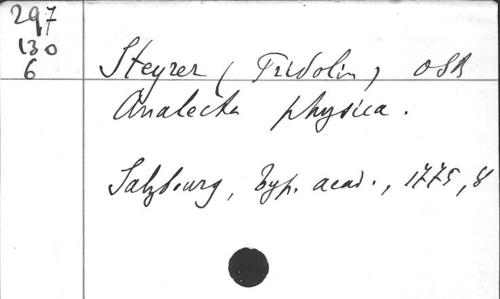 297
130
6
Steyrer (Fridolin) OSB
Analecta physica.
Salzburg, typ. acad., 1775, 8